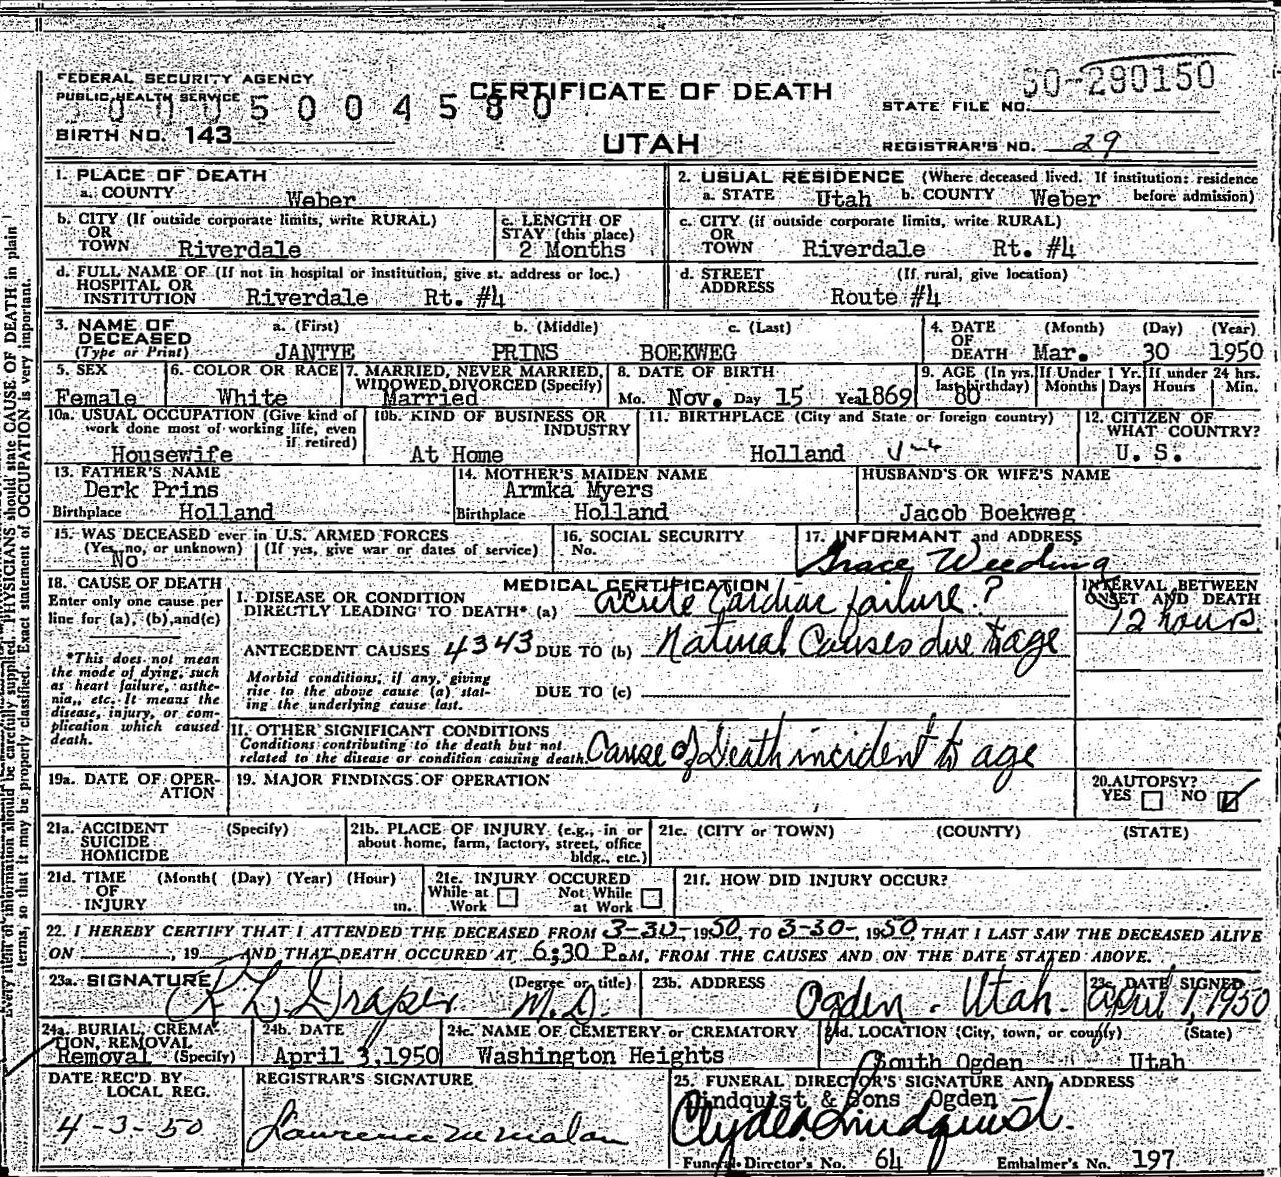 FEDERAL SECURITY AGENCY
PUBLIC HEALTH SERVICE
CERTIFICATE OF DEATH
50-290150
STATE FILE NO.
0005004580
BIRTH NO. 143
UTAH
REGISTRAR'S NO. 29
1. PLACE OF DEATH
a. COUNTY Weber
2. USUAL RESIDENCE (Where deceased lived. If institution: residence before admission)
a. STATE Utah b. COUNTY Weber
b. CITY (If outside corporate limits, write RURAL)
OR
TOWN Riverdale
c. LENGTH OF
STAY (this place)
2 Months
c. CITY (if outside corporate limits, write RURAL)
OR
TOWN Riverdale Rt. #4
d. FULL NAME OF (If not in hospital or institution, give st. address or loc.)
HOSPITAL OR
INSTITUTION Riverdale Rt. #4
d. STREET (If rural, give location)
ADDRESS Route #4
3. NAME OF DECEASED (Type or Print)
a. (First) b. (Middle) c. (Last)
JANTYE PRINS BOEKWEG
4. DATE OF DEATH (Month) (Day) (Year)
Mar. 30 1950
5. SEX
Female
6. COLOR OR RACE
White
7. MARRIED, NEVER MARRIED,
WIDOWED, DIVORCED (Specify)
Married
8. DATE OF BIRTH
Mo. Nov. Day 15 Year 1869
9. AGE (In yrs. last birthday) 80
If Under 1 Yr. Months Days
If under 24 hrs. Hours Min.
10a. USUAL OCCUPATION (Give kind of
work done most of working life, even
if retired)
Housewife
10b. KIND OF BUSINESS OR
INDUSTRY
At Home
11. BIRTHPLACE (City and State or foreign country)
Holland
12. CITIZEN OF
WHAT COUNTRY?
U. S.
13. FATHER'S NAME
Derk Prins
Birthplace Holland
14. MOTHER'S MAIDEN NAME
Armka Myers
Birthplace Holland
HUSBAND'S OR WIFE'S NAME
Jacob Boekweg
15. WAS DECEASED ever in U.S. ARMED FORCES
(Yes, no, or unknown) (If yes, give war or dates of service)
No
16. SOCIAL SECURITY
No.
17. INFORMANT and ADDRESS
Grace Weeding
18. CAUSE OF DEATH
Enter only one cause per
line for (a), (b), and (c)
*This does not mean
the mode of dying, such
as heart failure, asthe-
nia, etc. It means the
disease, injury, or com-
plication which caused
death.
MEDICAL CERTIFICATION
I. DISEASE OR CONDITION
DIRECTLY LEADING TO DEATH* (a) acute Cardiac failure.?
ANTECEDENT CAUSES 4343 DUE TO (b) Natural Causes due to age
Morbid conditions, if any, giving
rise to the above cause (a) stat-
ing the underlying cause last.
DUE TO (c)
INTERVAL BETWEEN
ONSET AND DEATH
12 hours
II. OTHER SIGNIFICANT CONDITIONS
Conditions contributing to the death but not
related to the disease or condition causing death.
Cause of Death incident to age
19a. DATE OF OPER-
ATION
19. MAJOR FINDINGS OF OPERATION
20. AUTOPSY?
YES NO
21a. ACCIDENT (Specify)
SUICIDE
HOMICIDE
21b. PLACE OF INJURY (e.g., in or
about home, farm, factory, street, office
bldg., etc.)
21c. (CITY or TOWN) (COUNTY) (STATE)
21d. TIME (Month) (Day) (Year) (Hour)
OF
INJURY m.
21e. INJURY OCCURED
While at Work
Not While at Work
21f. HOW DID INJURY OCCUR?
22. I HEREBY CERTIFY THAT I ATTENDED THE DECEASED FROM 3-30-, 1950, TO 3-30-, 1950, THAT I LAST SAW THE DECEASED ALIVE
ON , 19 AND THAT DEATH OCCURED AT 6:30 P.M. FROM THE CAUSES AND ON THE DATE STATED ABOVE.
23a. SIGNATURE (Degree or title)
R L Draper M.D.
23b. ADDRESS
Ogden - Utah.
23c. DATE SIGNED
April 1, 1950
24a. BURIAL, CREMA-
TION, REMOVAL
Removal (Specify)
24b. DATE
April 3, 1950
24c. NAME OF CEMETERY or CREMATORY
Washington Heights
24d. LOCATION (City, town, or county) (State)
South Ogden Utah
DATE REC'D BY
LOCAL REG.
4-3-50
REGISTRAR'S SIGNATURE
Lawrence M Malan
25. FUNERAL DIRECTOR'S SIGNATURE AND ADDRESS
Lindquist & Sons Ogden
Clyde Lindquist.
Funeral Director's No. 64 Embalmer's No. 197
Every item of information should be carefully supplied. PHYSICIANS should state CAUSE OF DEATH in plain
terms, so that it may be properly classified. Exact statement of OCCUPATION is very important.